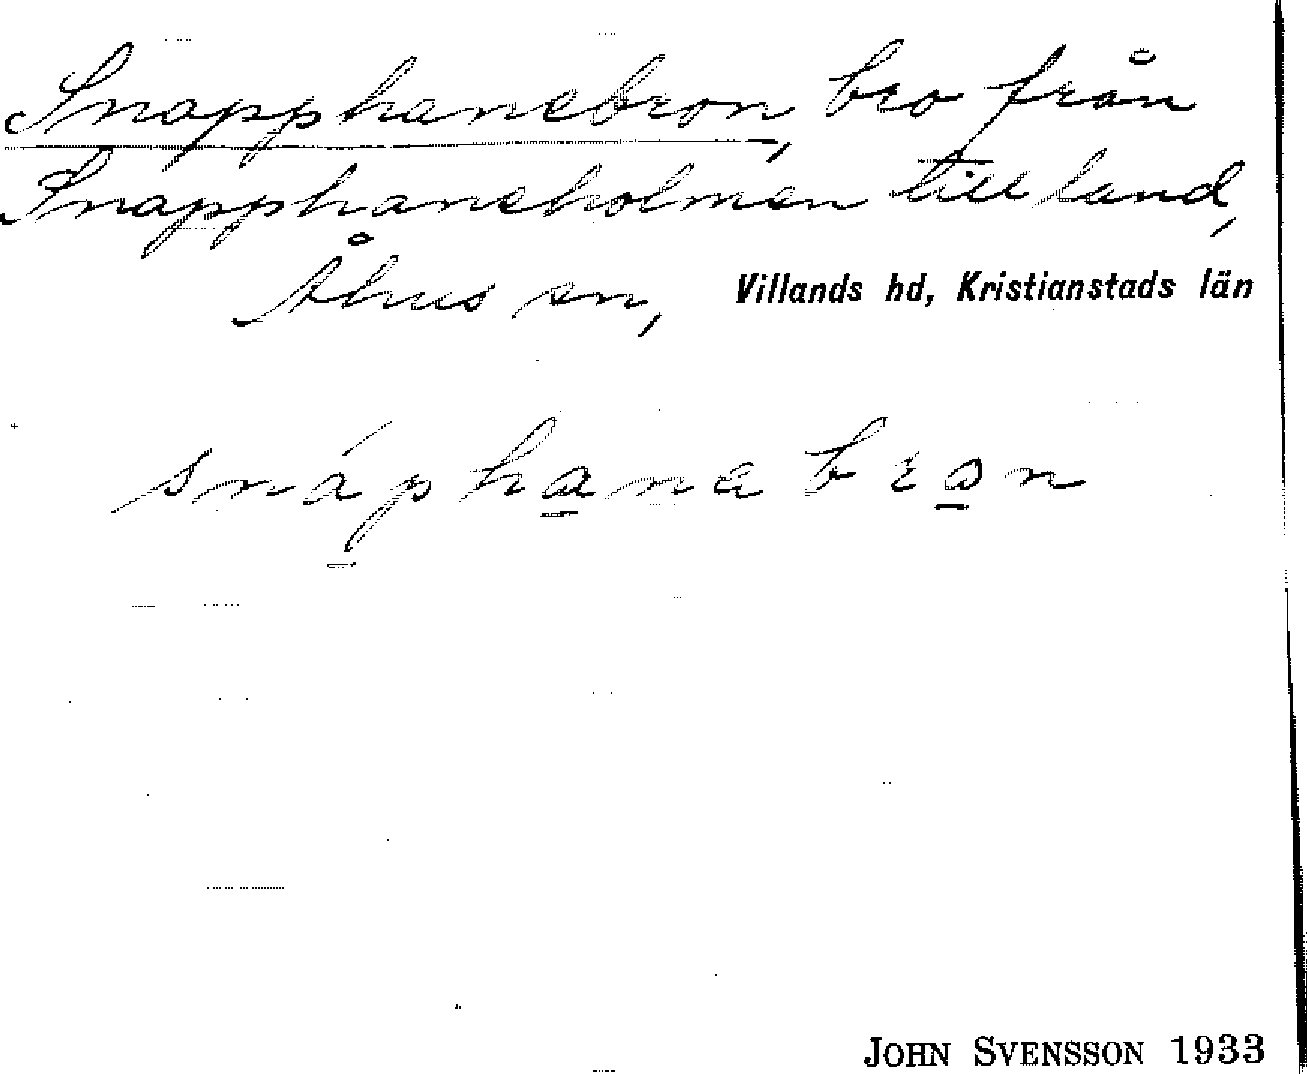 Snapphanebron, bro från
Snapphaneholmen till land,
Åhus sn, Villands hd, Kristianstads län
snáphanabron
JOHN SVENSSON 1933